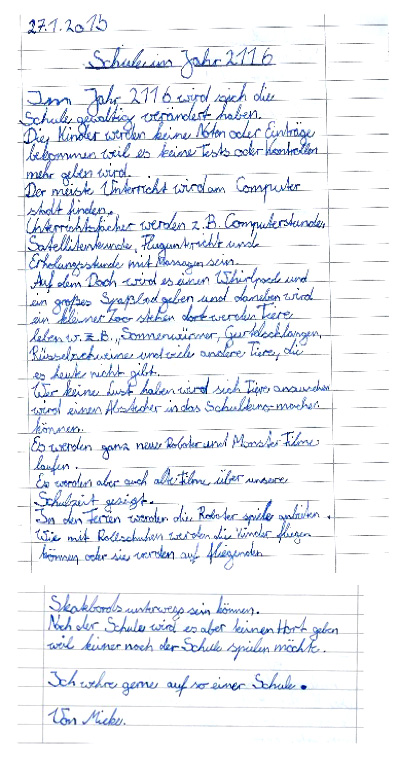 27.1.2015
Schule im Jahr 2116
Im Jahr 2116 wird sich die
Schule gewaltig verändert haben.
Die Kinder werden keine Noten oder Einträge
bekommen weil es keine Tests oder Kontrollen
mehr geben wird.
Der meiste Unterricht wird am Computer
statt finden.
Unterrichtsfächer werden z.B. Computerstunde,
Satellitenkunde, Flugunterricht und
Erholungsstunde mit Massagen sein.
Auf dem Dach wird es einen Whirlpool und
ein großes Spaßbad geben und daneben wird
ein kleiner Zoo stehen dort werden Tiere
leben w.z.B. Sonnenwürmer, Gurkschlangen,
Rüsselschweine und viele andere Tiere, die
es heute nicht gibt.
Wer keine Lust haben wird sich Tiere anzusehen
wird einen Abstecher in das Schulkino machen
können.
Es werden ganz neue Roboter und Monster Filme
laufen.
Es werden aber auch alte Filme über unsere
Schulzeit gezeigt.
In den Ferien werden die Roboter spiele anbieten.
Wie mit Rollschuhen werden die Kinder fliegen
können oder sie werden auf fliegenden
Skatbords unterwegs sein können.
Nach der Schule wird es aber keinen Hort geben
weil keiner nach der Schule spielen möchte.
Ich wehre gerne auf so einer Schule.
Von Micke.